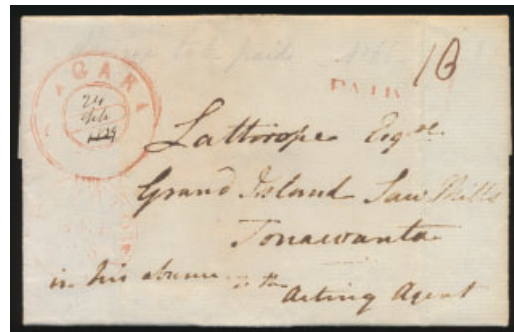 to be paid
16
NIAGARA
PAID
24
Feb
1839
Lathrope Esqre
Grand Island Saw Mills
Tonawanta
in his absence to the
Acting Agent